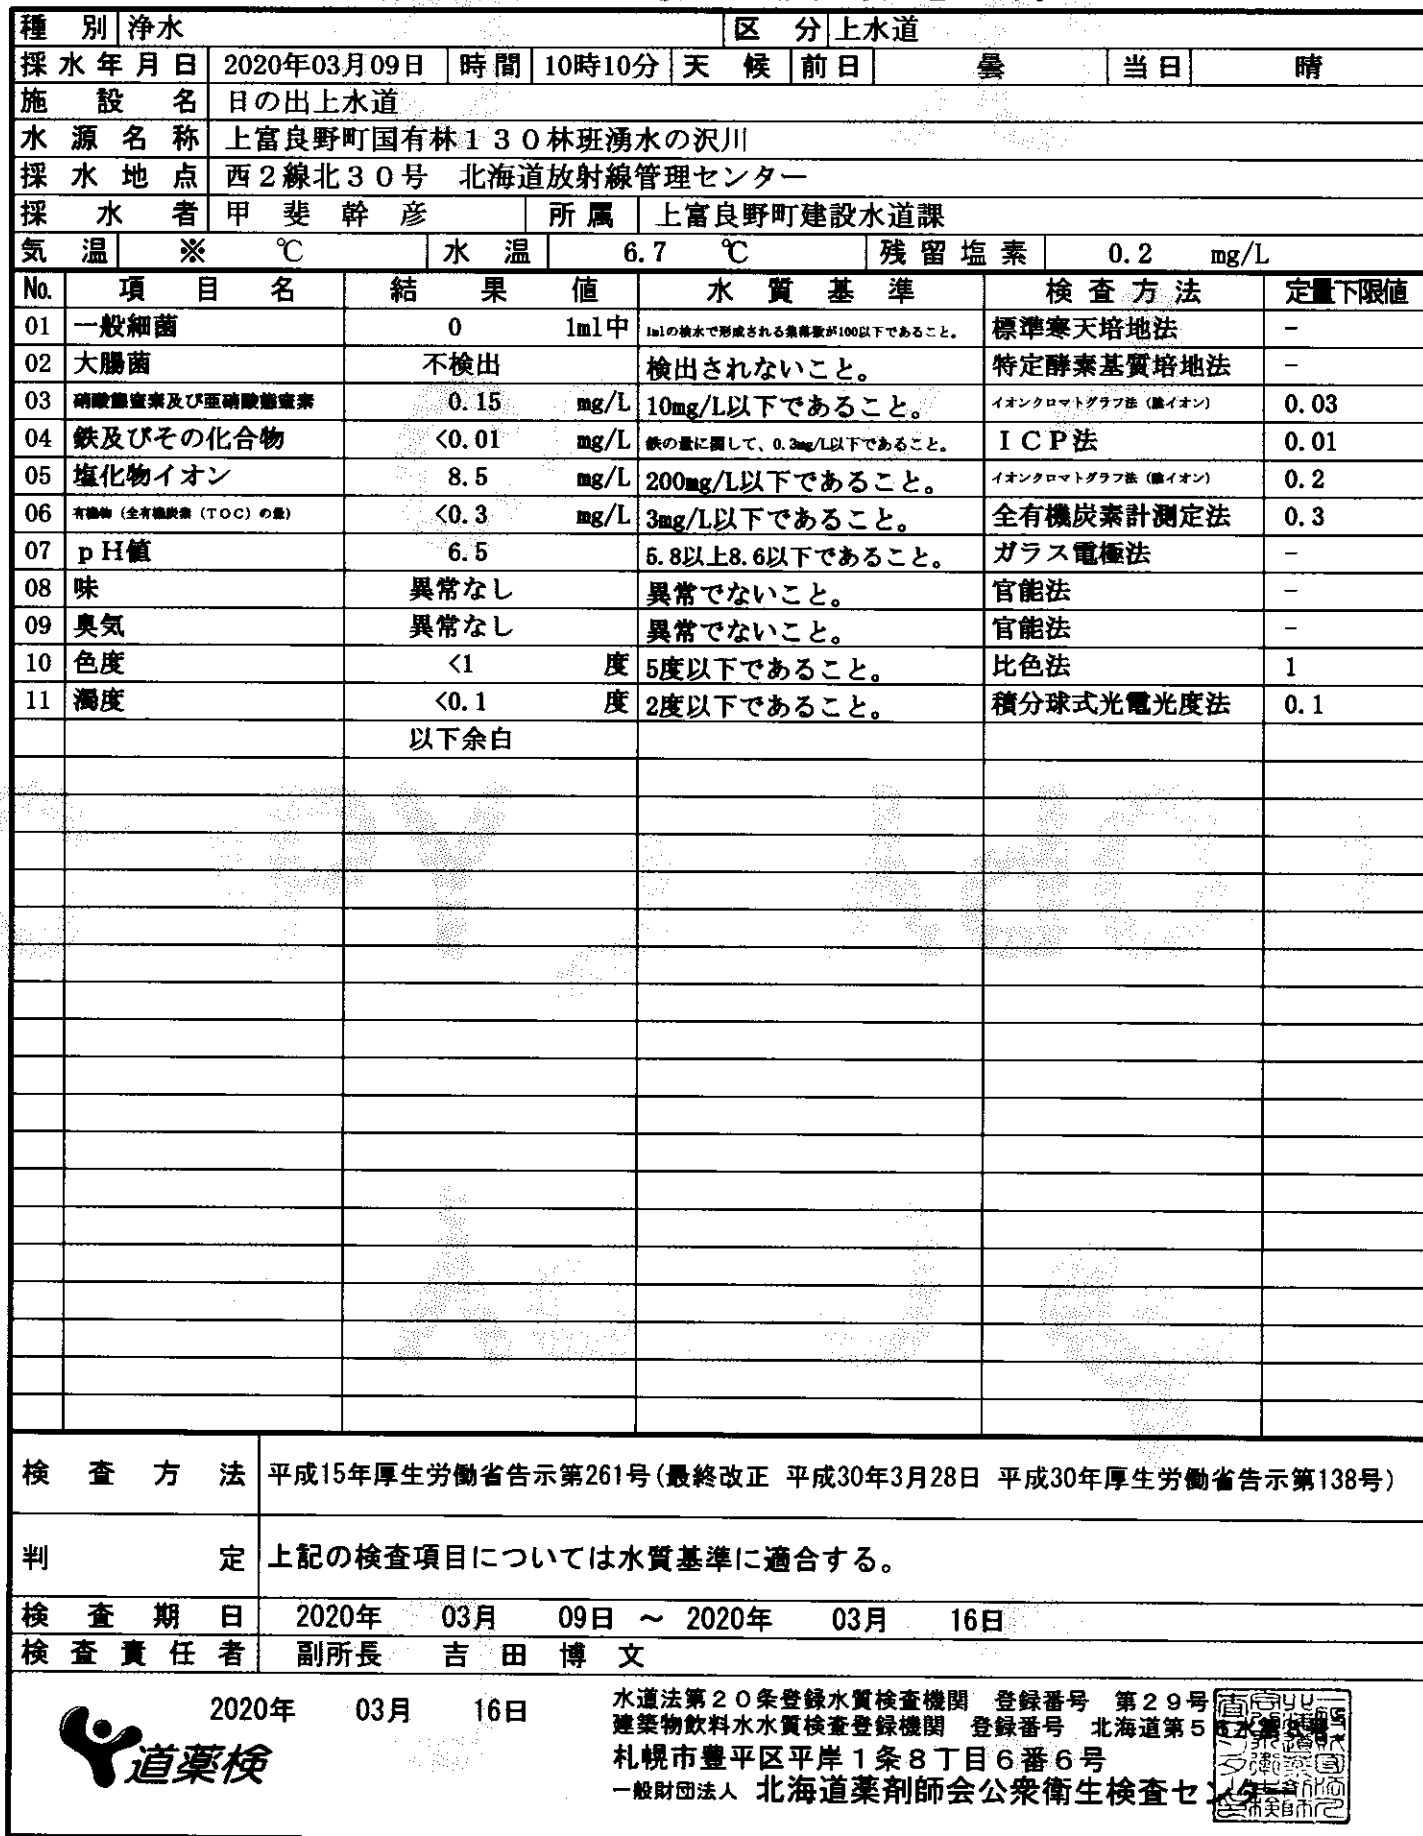 種別 浄水 区分 上水道
採水年月日 2020年03月09日 時間 10時10分 天候 前日 曇 当日 晴
施設名 日の出上水道
水源名称 上富良野町国有林130林班湧水の沢川
採水地点 西2線北30号 北海道放射線管理センター
採水者 甲斐幹彦 所属 上富良野町建設水道課
気温 ※ ℃ 水温 6.7 ℃ 残留塩素 0.2 mg/L
No. 項目名 結果値 水質基準 検査方法 定量下限値
01 一般細菌 0 1ml中 1mlの検水で形成される集落数が100以下であること。 標準寒天培地法 -
02 大腸菌 不検出 検出されないこと。 特定酵素基質培地法 -
03 硝酸態窒素及び亜硝酸態窒素 0.15 mg/L 10mg/L以下であること。 イオンクロマトグラフ法(陰イオン) 0.03
04 鉄及びその化合物 <0.01 mg/L 鉄の量に関して、0.3mg/L以下であること。 ICP法 0.01
05 塩化物イオン 8.5 mg/L 200mg/L以下であること。 イオンクロマトグラフ法(陰イオン) 0.2
06 有機物(全有機炭素(TOC)の量) <0.3 mg/L 3mg/L以下であること。 全有機炭素計測定法 0.3
07 pH値 6.5 5.8以上8.6以下であること。 ガラス電極法 -
08 味 異常なし 異常でないこと。 官能法 -
09 臭気 異常なし 異常でないこと。 官能法 -
10 色度 <1 度 5度以下であること。 比色法 1
11 濁度 <0.1 度 2度以下であること。 積分球式光電光度法 0.1
以下余白
検査方法 平成15年厚生労働省告示第261号(最終改正 平成30年3月28日 平成30年厚生労働省告示第138号)
判定 上記の検査項目については水質基準に適合する。
検査期日 2020年 03月 09日 ～ 2020年 03月 16日
検査責任者 副所長 吉田博文
2020年 03月 16日
道薬検
水道法第20条登録水質検査機関 登録番号 第29号
建築物飲料水水質検査登録機関 登録番号 北海道第5
札幌市豊平区平岸1条8丁目6番6号
一般財団法人 北海道薬剤師会公衆衛生検査センター